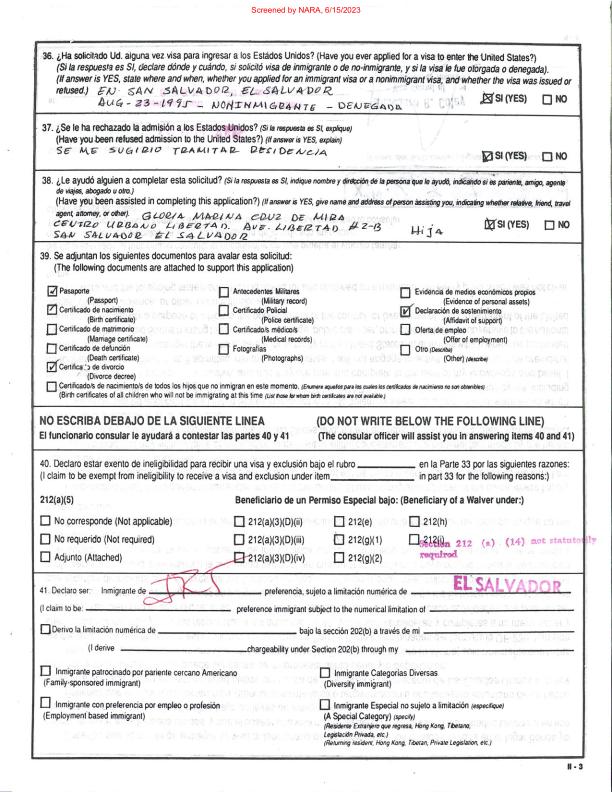 Screened by NARA, 6/15/2023
36. ¿Ha solicitado Ud. alguna vez visa para ingresar a los Estados Unidos? (Have you ever applied for a visa to enter the United States?)
(Si la respuesta es SI, declare dónde y cuándo, si solicitó visa de inmigrante o de no-inmigrante, y si la visa le fue otorgada o denegada).
(If answer is YES, state where and when, whether you applied for an immigrant visa or a nonimmigrant visa, and whether the visa was issued or
refused.) EN SAN SALVADOR, EL SALVADOR
AUG-23-1995 - NONINMIGRANTE - DENEGADA
SI (YES) NO
37. ¿Se le ha rechazado la admisión a los Estados Unidos? (Si la respuesta es SI, explique)
(Have you been refused admission to the United States?) (If answer is YES, explain)
SE ME SUGIRIO TRAMITAR RESIDENCIA
SI (YES) NO
38. ¿Le ayudó alguien a completar esta solicitud? (Si la respuesta es SI, indique nombre y dirección de la persona que le ayudó, indicando si es pariente, amigo, agente
de viajes, abogado u otro.)
(Have you been assisted in completing this application?) (If answer is YES, give name and address of person assisting you, indicating whether relative, friend, travel
agent, attorney, or other). GLORIA MARINA CRUZ DE MIRA
CENTRO URBANO LIBERTAD. AVE. LIBERTAD #2-B Hija SI (YES) NO
SAN SALVADOR EL SALVADOR
39. Se adjuntan los siguientes documentos para avalar esta solicitud:
(The following documents are attached to support this application)
Pasaporte Antecedentes Militares Evidencia de medios económicos propios
(Passport) (Military record) (Evidence of personal assets)
Certificado de nacimiento Certificado Policial Declaración de sostenimiento
(Birth certificate) (Police certificate) (Affidavit of support)
Certificado de matrimonio Certificado/s médico/s Oferta de empleo
(Marriage certificate) (Medical records) (Offer of employment)
Certificado de defunción Fotografías Otro (Describa)
(Death certificate) (Photographs) (Other) (describe)
Certificado de divorcio
(Divorce decree)
Certificado/s de nacimiento/s de todos los hijos que no inmigran en este momento. (Enumere aquellos para los cuales los certificados de nacimiento no son obtenibles)
(Birth certificates of all children who will not be immigrating at this time (List those for whom birth certificates are not available.)
NO ESCRIBA DEBAJO DE LA SIGUIENTE LINEA (DO NOT WRITE BELOW THE FOLLOWING LINE)
El funcionario consular le ayudará a contestar las partes 40 y 41 (The consular officer will assist you in answering items 40 and 41)
40. Declaro estar exento de ineligibilidad para recibir una visa y exclusión bajo el rubro en la Parte 33 por las siguientes razones:
(I claim to be exempt from ineligibility to receive a visa and exclusion under item in part 33 for the following reasons:)
212(a)(5) Beneficiario de un Permiso Especial bajo: (Beneficiary of a Waiver under:)
No corresponde (Not applicable) 212(a)(3)(D)(ii) 212(e) 212(h)
No requerido (Not required) 212(a)(3)(D)(iii) 212(g)(1) 212(i)
Section 212 (a) (14) not statutorily
required
Adjunto (Attached) 212(a)(3)(D)(iv) 212(g)(2)
EL SALVADOR
41. Declaro ser: Inmigrante de preferencia, sujeto a limitación numérica de
(I claim to be: preference immigrant subject to the numerical limitation of
Derivo la limitación numérica de bajo la sección 202(b) a través de mi
(I derive chargeability under Section 202(b) through my
Inmigrante patrocinado por pariente cercano Americano Inmigrante Categorías Diversas
(Family-sponsored immigrant) (Diversity immigrant)
Inmigrante con preferencia por empleo o profesión Inmigrante Especial no sujeto a limitación (especifique)
(Employment based immigrant) (A Special Category) (specify)
(Residente Extranjero que regresa, Hong Kong, Tibetano,
Legislación Privada, etc.)
(Returning resident, Hong Kong, Tibetan, Private Legislation, etc.)
II - 3